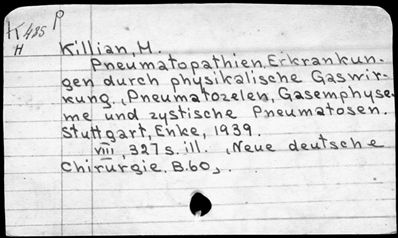 K 425 P
H
Killian, M.
Pneumatopathien, Erkrankun-
gen durch physikalische Gaswir-
kung. (Pneumatozelen, Gasemphyse-
me und zystische Pneumatosen.
Stuttgart, Enke, 1939.
viii, 327 s. ill. (Neue deutsche
Chirurgie. B.60).